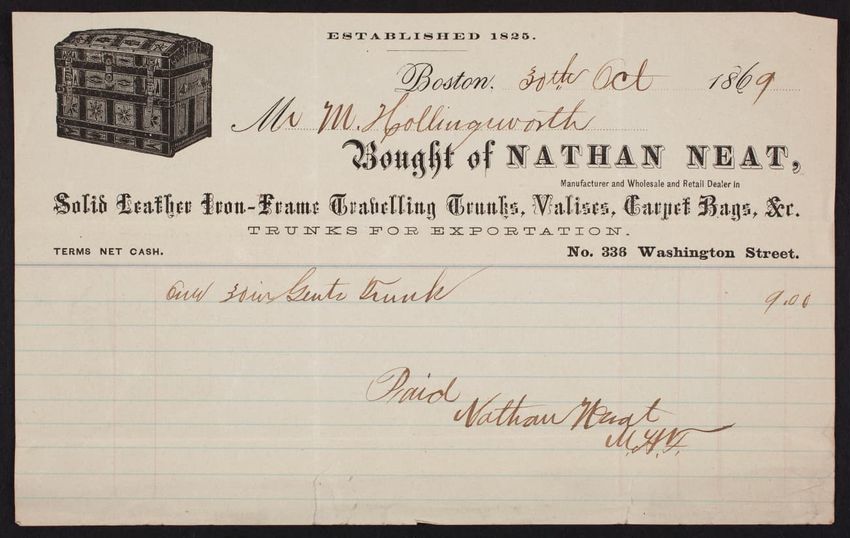 ESTABLISHED 1825.
Boston. 30th Oct 1869
Mr M. Hollingsworth
Bought of NATHAN NEAT,
Manufacturer and Wholesale and Retail Dealer in
Solid Leather Iron-Frame Travelling Trunks, Valises, Carpet Bags, &c.
TRUNKS FOR EXPORTATION.
TERMS NET CASH. No. 336 Washington Street.
One 30in Gents Trunk 9.00
Paid
Nathan Neat